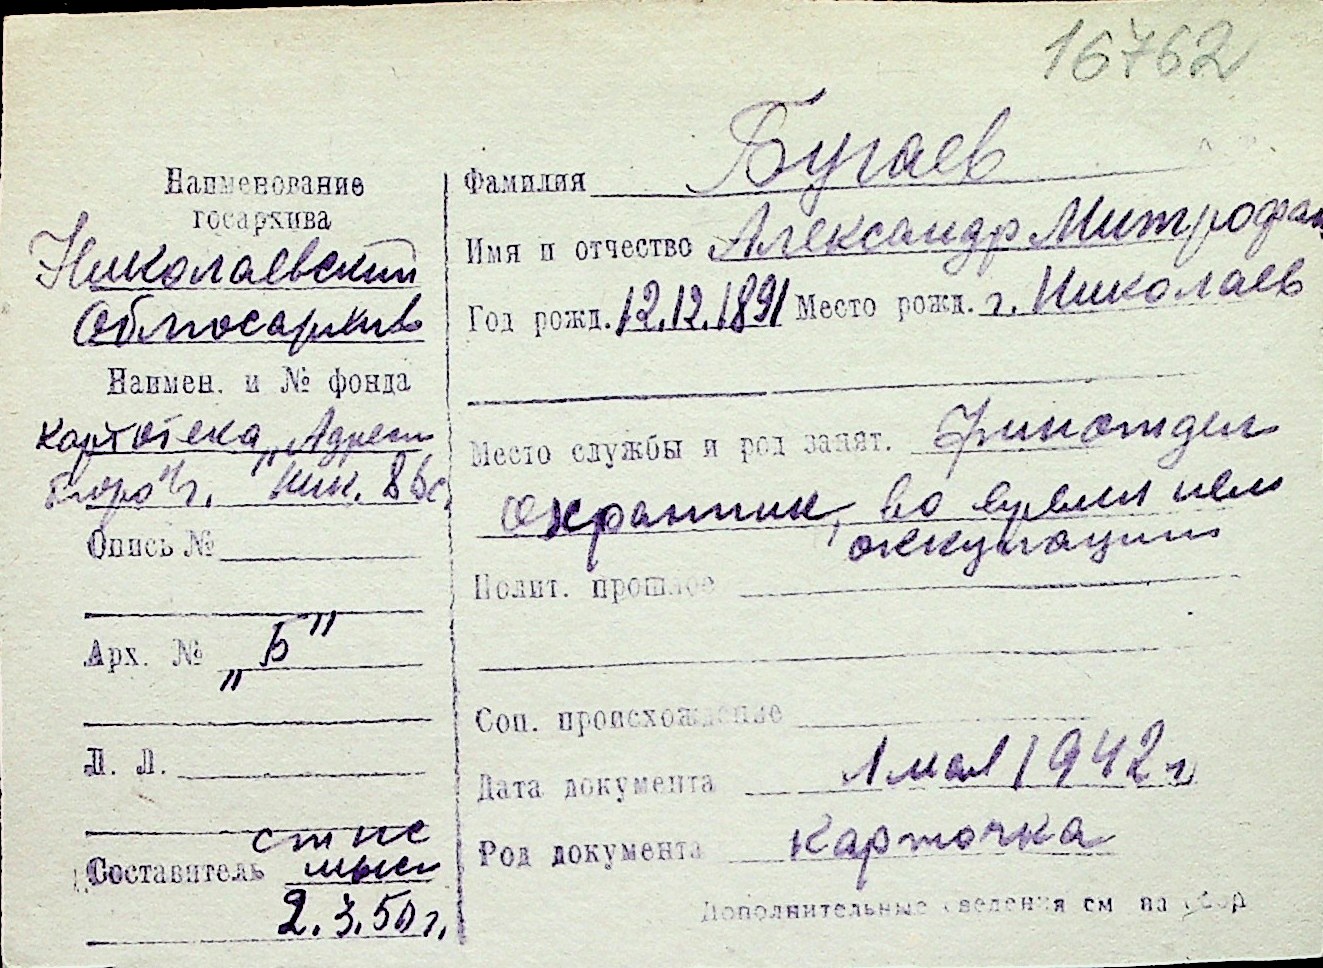 16762
Наименование
госархива
Николаевский
Облгосархив
Наимен. и № фонда
картотека „Адресн
бюро" г. Ник.
Опись №
Арх. № „Б"
Л. Л.
Составитель
2.3.50 г.
Фамилия Бугаев
Имя и отчество Александр Митрофан
Год рожд. 12.12.1891 Место рожд. г. Николаев
Место службы и род занят. Финотдел
охранник, во время нем
оккупации
Полит. прошлое
Соц. происхождение
Дата документа 1 мая 1942 г
Род документа карточка
Дополнительные сведения см на обор